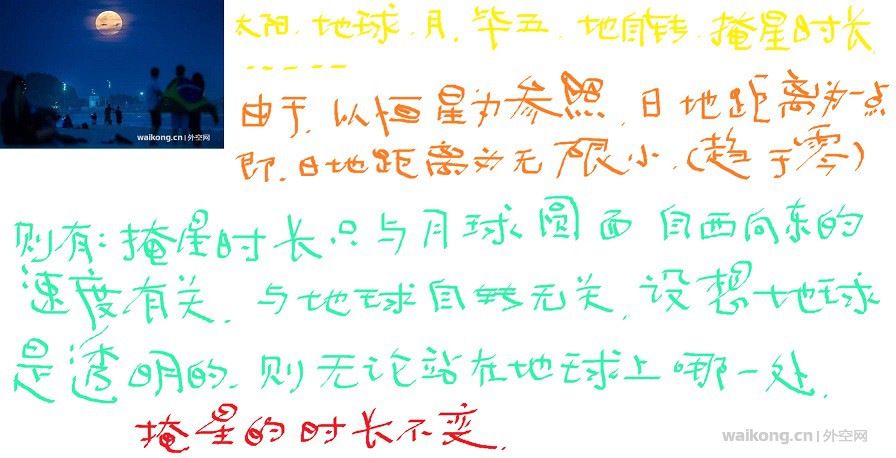 waikong.cn | 外空网
太阳.地球.月.毕五.地自转.掩星时长
-----
由于.以恒星为参照.日地距离为一点
即.日地距离为无限小.(趋于零)
则有:掩星时长只与月球圆面自西向东的
速度有关.与地球自转无关.设想地球
是透明的.则无论站在地球上哪一处.
掩星的时长不变.
waikong.cn | 外空网